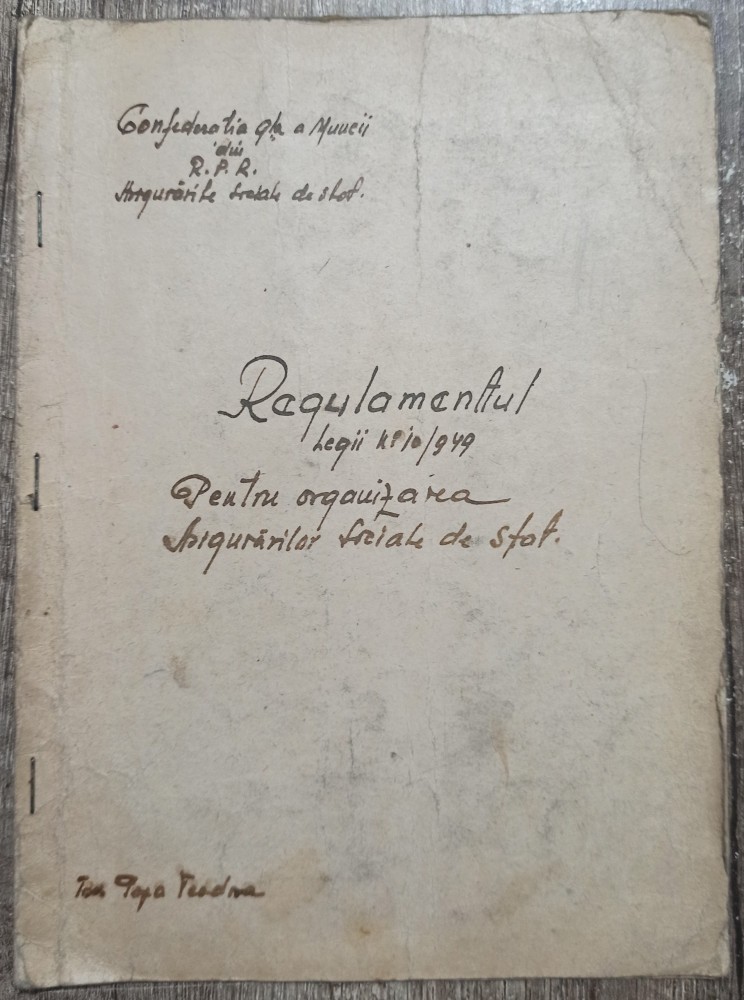 Confederatia Gla a Muncii
din
R.P.R.
Asigurările Sociale de Stat.
Regulamentul
Legii No 10/949
Pentru organizarea
Asigurărilor Sociale de Stat.
Popa Teodora